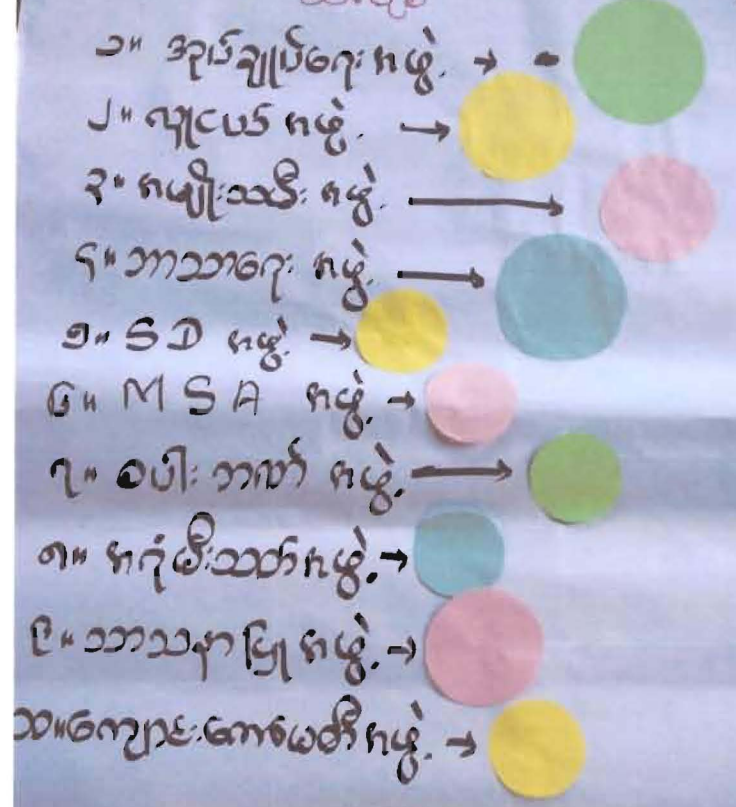 ၁။ အုပ်ချုပ်ရေး အဖွဲ့. → -
၂။ လူငယ် အဖွဲ့. →
၃။ အမျိုးသမီး အဖွဲ့. →
၄။ ဘာသာရေး အဖွဲ့. →
၅။ SD အဖွဲ့. →
၆။ MSA အဖွဲ့. →
၇။ စပါး ဘဏ် အဖွဲ့. →
၈။ အရံမီးသတ် အဖွဲ့. →
၉။ သာသနာပြု အဖွဲ့. →
၁၀။ ကျောင်းကော်မတီ အဖွဲ့. →